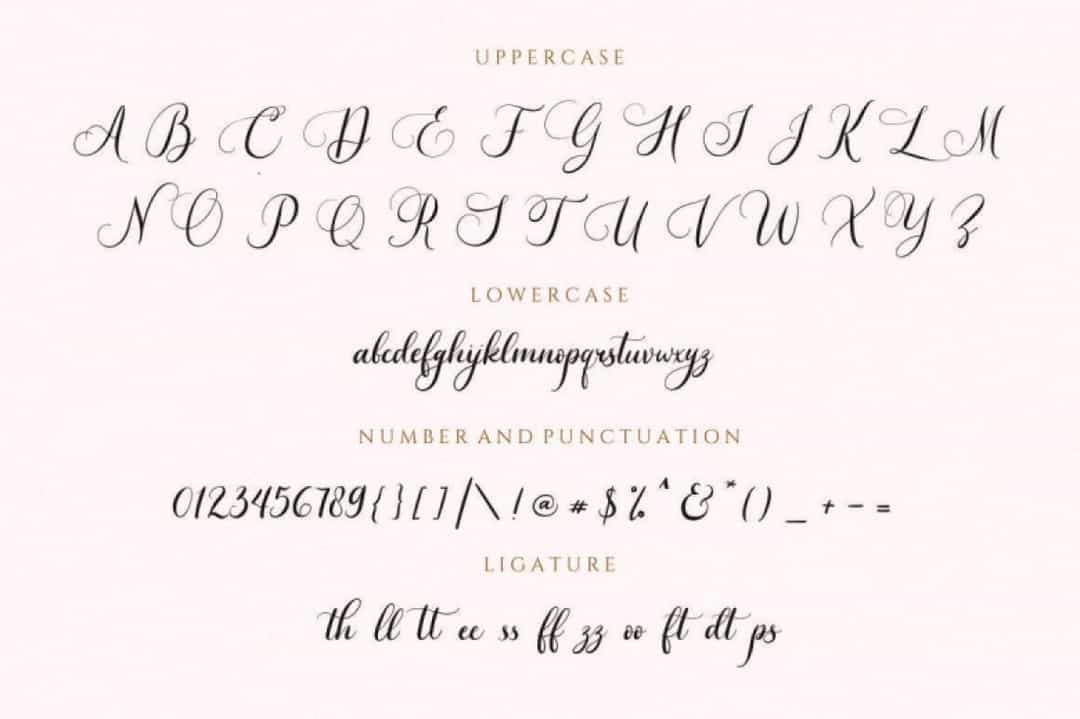 UPPERCASE
A B C D E F G H I J K L M
N O P Q R S T U V W X Y Z
LOWERCASE
abcdefghijklmnopqrstuvwxyz
NUMBER AND PUNCTUATION
0123456789{}[]/\!@#$%^&*()_+-=
LIGATURE
th ll tt ee ss ff zz oo ft dt ps